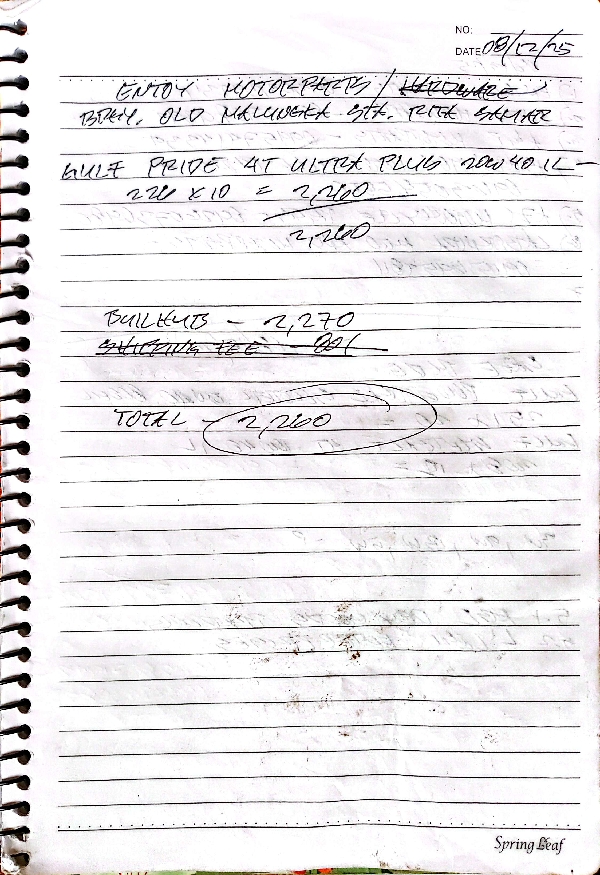 NO:
DATE 08/12/25
ENTOY MOTORPARTS / HARDWARE
BRGY. OLD MANUNCA STA. RITA SAMAR
GULF PRIDE 4T ULTRA PLUS 20W40 1L -
226 X 10 = 2,260
2,260
- 2,270
SHIPPING FEE - 80/
TOTAL - 2,260
Spring Leaf